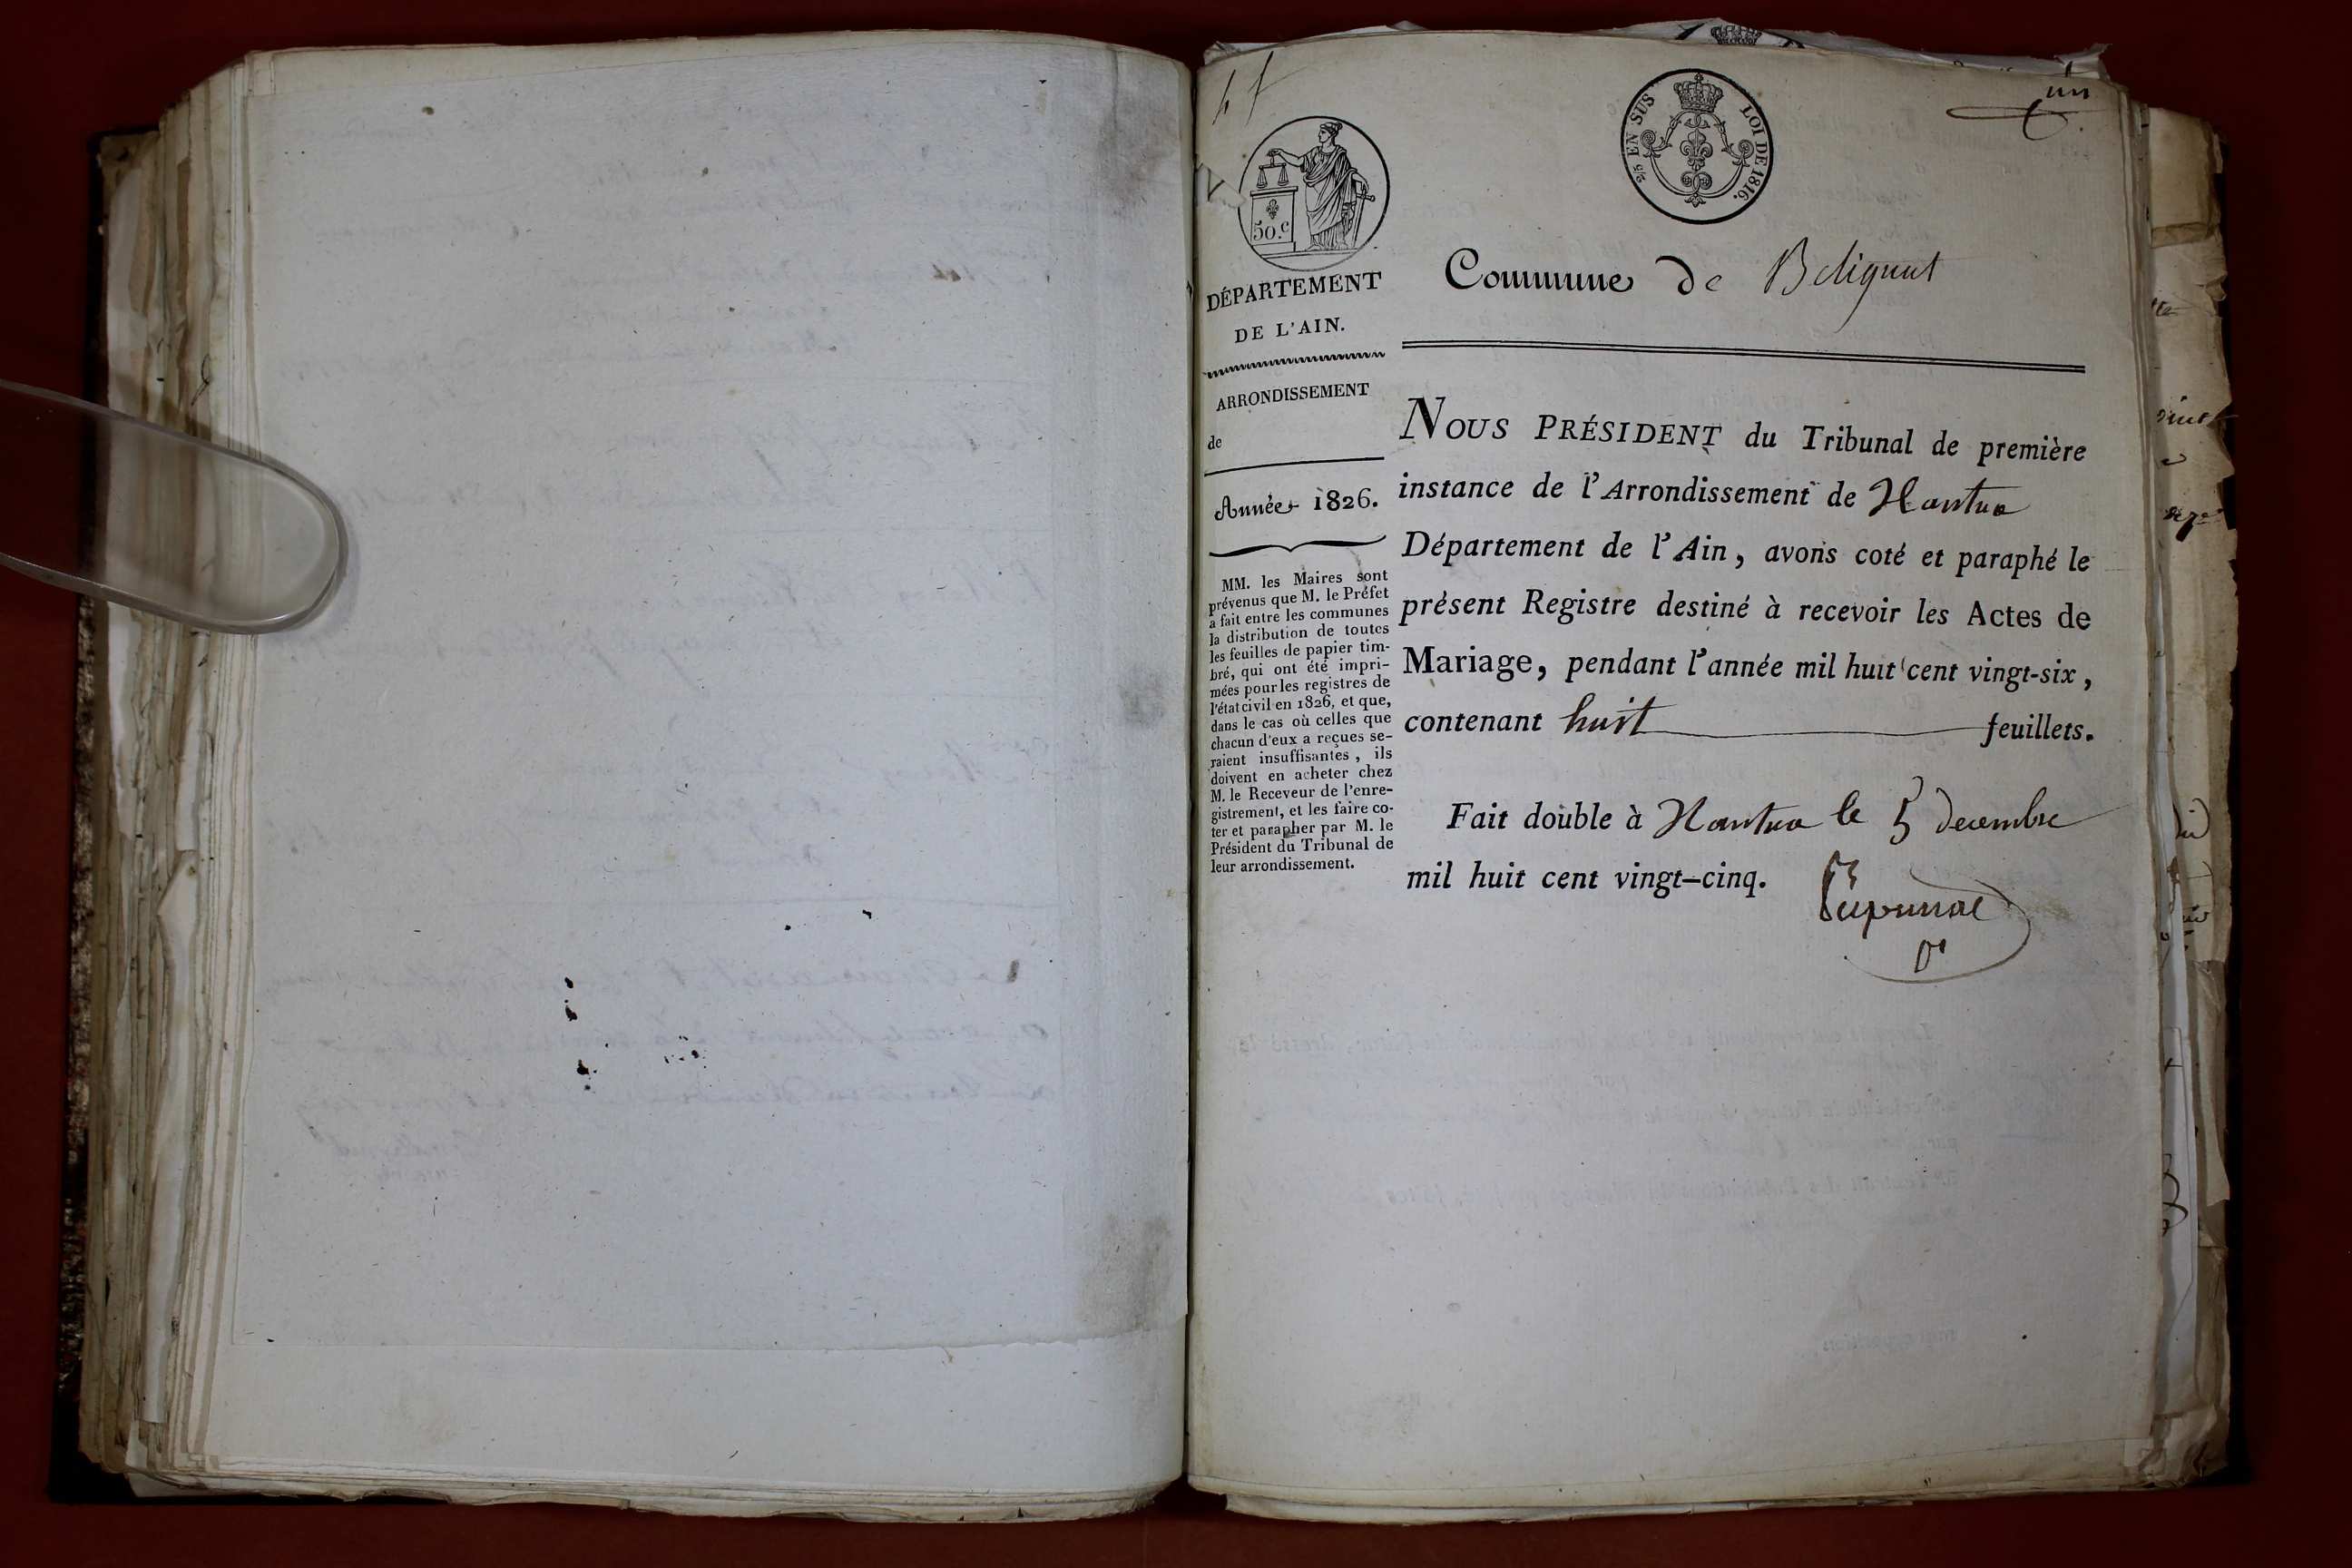 un
2/5 EN SUS LOI DE 1816.
50.c
DÉPARTEMENT
DE L'AIN.
ARRONDISSEMENT
de
Année 1826.
MM. les Maires sont
prévenus que M. le Préfet
a fait entre les communes
la distribution de toutes
les feuilles de papier tim-
bré, qui ont été impri-
mées pour les registres de
l'état civil en 1826, et que,
dans le cas où celles que
chacun d'eux a reçues se-
raient insuffisantes, ils
doivent en acheter chez
M. le Receveur de l'enre-
gistrement, et les faire co-
ter et parapher par M. le
Président du Tribunal de
leur arrondissement.
Commune de Belignat
NOUS PRÉSIDENT du Tribunal de première
instance de l'Arrondissement de Nantua
Département de l'Ain, avons coté et paraphé le
présent Registre destiné à recevoir les Actes de
Mariage, pendant l'année mil huit cent vingt-six,
contenant huit feuillets.
Fait double à Nantua le 5 decembre
mil huit cent vingt-cinq.